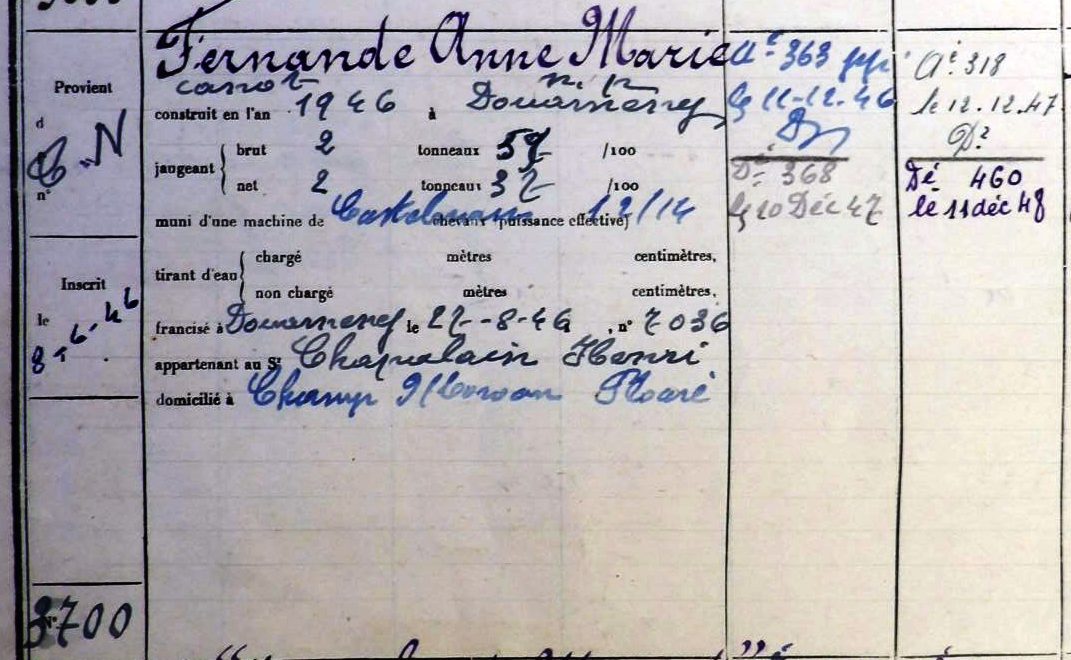 Provient
d
C.N
n°
Inscrit
le
8-6-46
N° 3700
Fernande Anne Marie
canot
construit en l'an 1946 à Douarnenez
jaugeant
brut 2 tonneaux 57 /100
net 2 tonneaux 37 /100
muni d'une machine de 12/14 chevaux (puissance effective)
tirant d'eau
chargé mètres centimètres,
non chargé mètres centimètres,
francisé à Douarnenez le 27-8-46, n° 7036
appartenant au Sr Chapalain Henri
domicilié à Champ Ploaré
Aé 363
le 11-12-46
Dz
Dé 368
le 10 Déc 47
Aé 318
le 12.12.47
Dz
Dé 460
le 11 déc 48